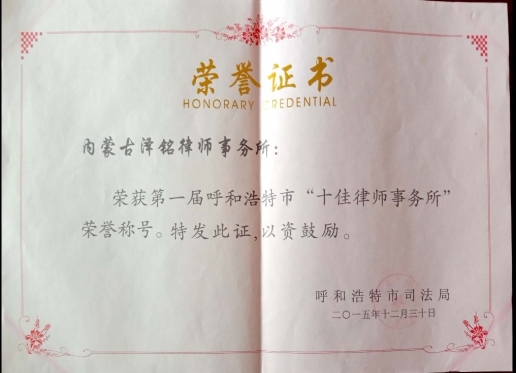 荣誉证书
HONORARY CREDENTIAL
内蒙古泽铭律师事务所：
荣获第一届呼和浩特市“十佳律师事务所”
荣誉称号。特发此证,以资鼓励。
呼和浩特市司法局
二〇一五年十二月三十日